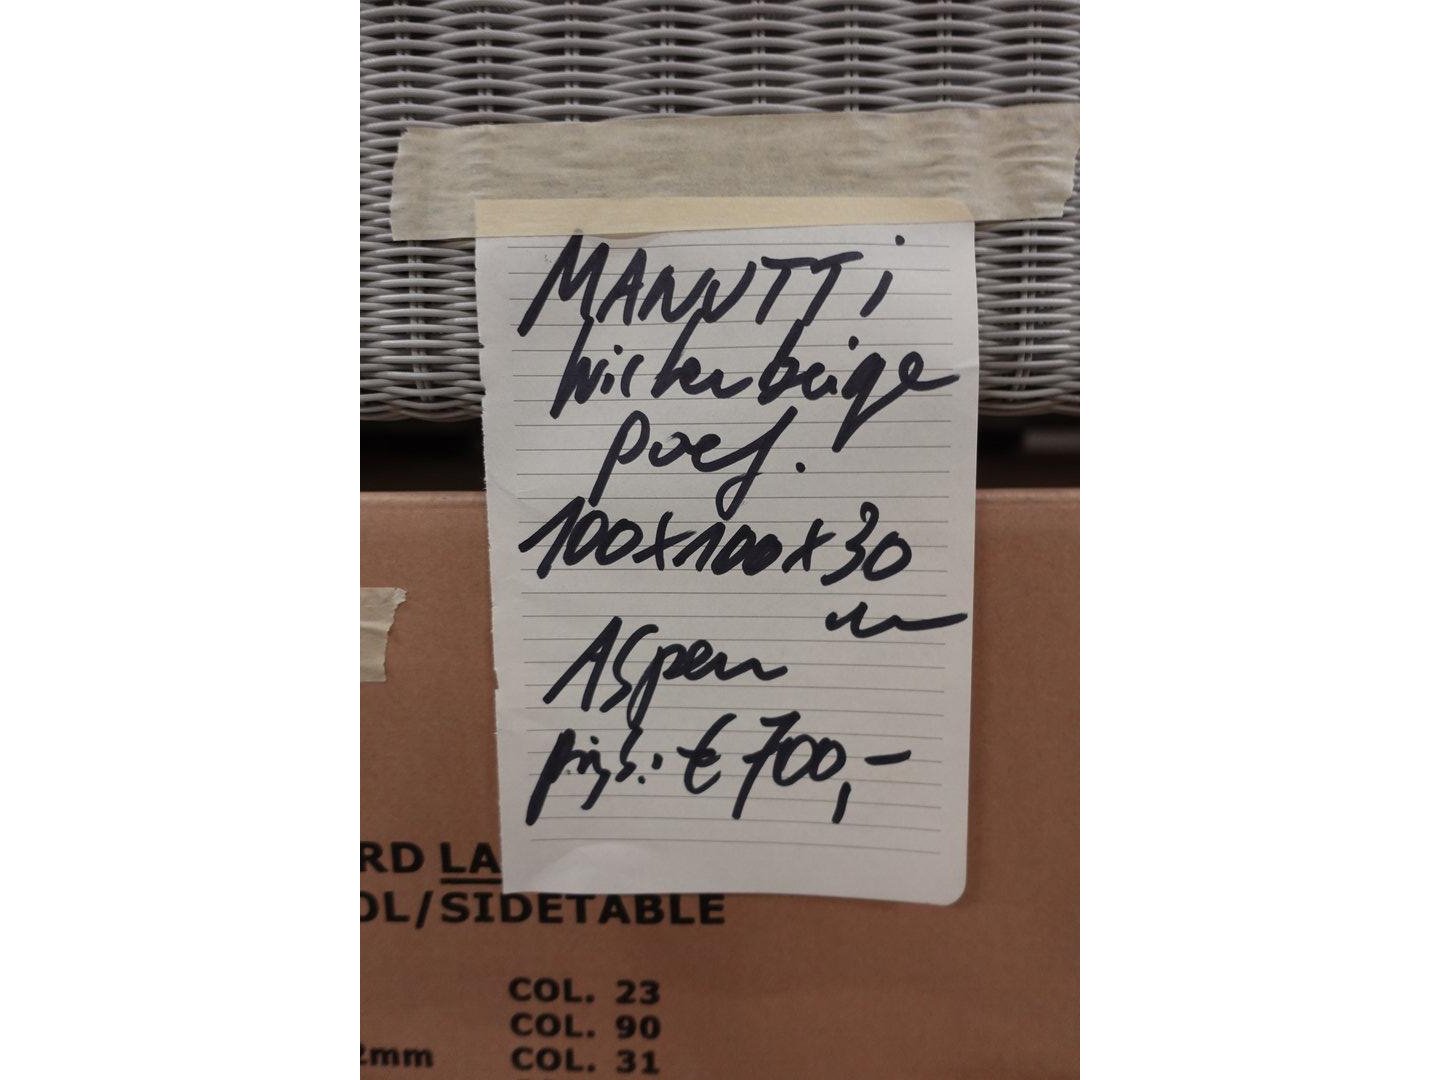 MANUTTi
wicker beige
poef.
100x100x30
Aspen
prijs: € 700,-
RD LA
OL/SIDETABLE
COL. 23
COL. 90
2mm COL. 31